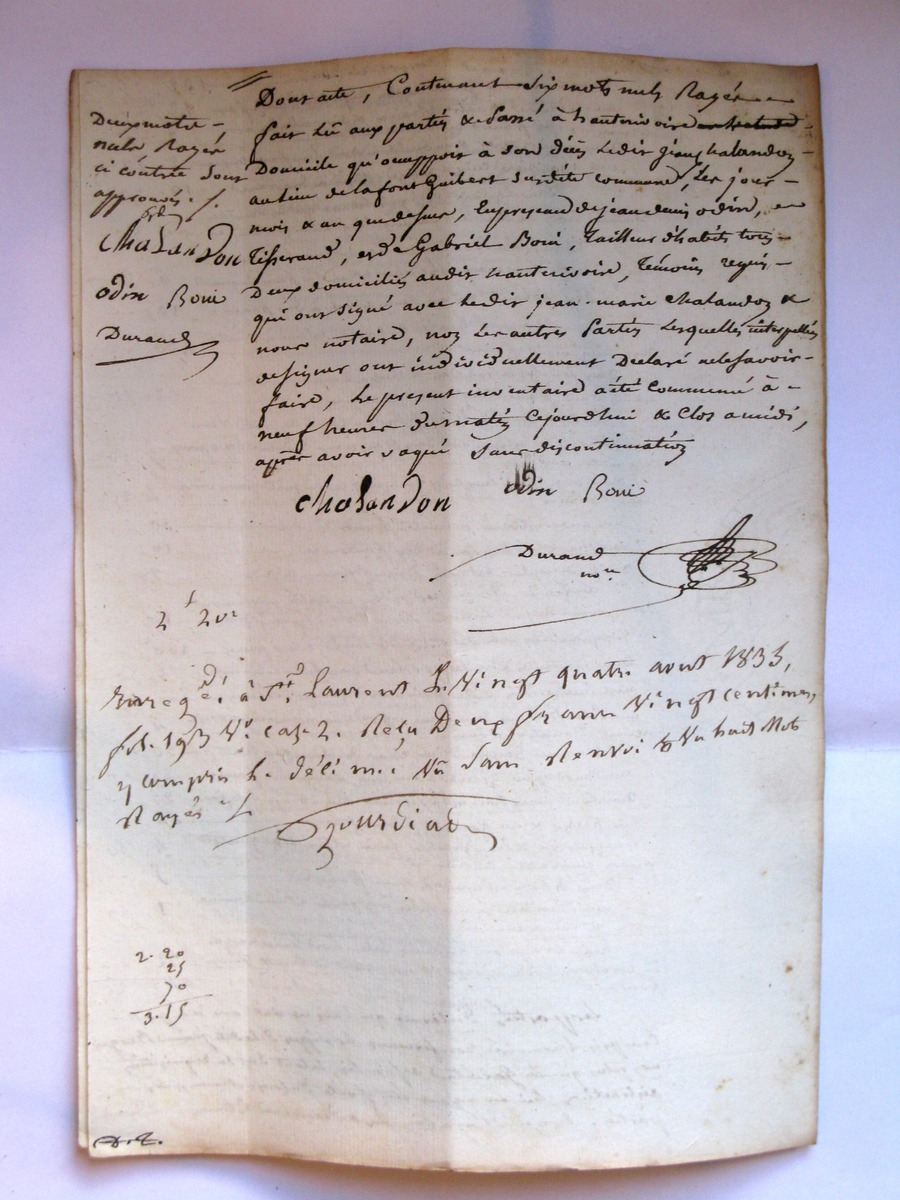 Deux mots
nuls Rayés
ci contre sont
approuvés ./.
chalandon
odin Boni
Durand
Dont acte, Contenant Six mots nuls Rayés
fait Lû aux parties & Passé à hauterivoire
Domicile qu'occuppoit à son décès Ledit jean chalandon
au lieu de lafont Guibert Susdite commune, Les jour
mois & an que dessus, En presence de jean denis odin,
Tisserand, et de Gabriel Boni, Tailleur d'habits tous
Deux domiciliés audit hauterivoire, Témoins requis
qui ont Signé avec Ledit jean-marie chalandon &
nous notaire, non Les autres Parties Lesquelles interpellées
de signer ont individuellement Declaré ne le Savoir
faire, Le present inventaire a été Commencé à
neuf heures du matin Cejourdhui & Clos a midi,
après avoir vaqué Sans discontinuation
chalandon odin Boni
Durand
nore
2 f 20c
Enregé. à St. Laurent Le Vingt quatre août 1833,
fol. 193 Vo. cas. 2. Reçu Deux francs Vingt centimes,
y compris le décime. Vu Sans Renvoi & Vu huit Mots
Rayés ./.
2. 20
25
70
3. 15